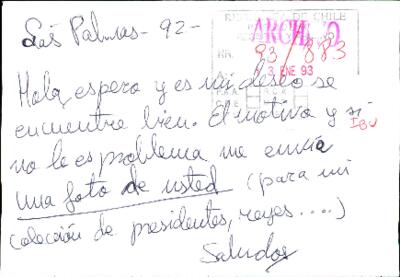 Las Palmas - 92 -
REPUBLICA DE CHILE
ARCHIVO
NR. 93/883
3 ENE 93
Hola, espero y es mi deseo se
encuentre bien. El motivo y si
no le es problema me envía
una foto de usted (para mi
colección de presidentes, reyes....)
Saludos